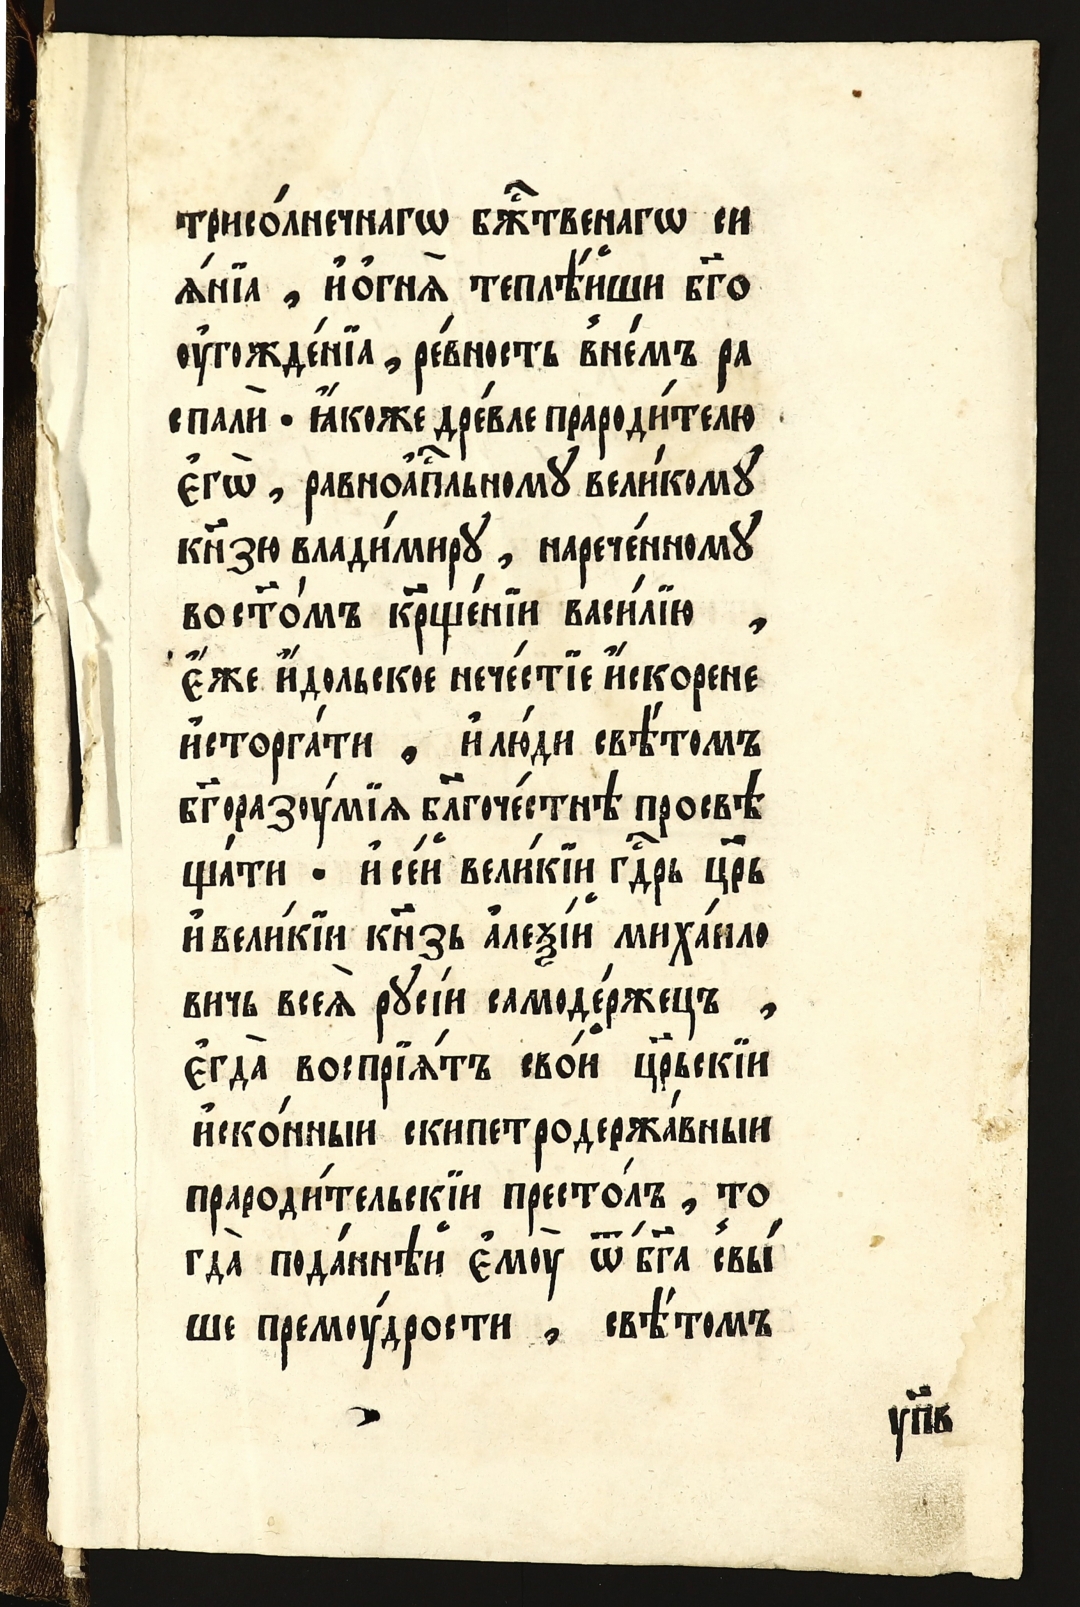 трисо́лнечнагѡ бж҃твенагѡ си
ѧ́нїа , и҆ ѻ҆гнѧ̀ теплѣ́йши бг҃о
оу҆гожде́нїа , ре́вность внемъ ра
спалѝ • ꙗ҆́коже дре́вле прароди́телю
є҆гѡ̀ , равноа҆пⷭ҇льномꙋ вели́комꙋ
кн҃зю влади́мирꙋ , нарече́нномꙋ
во ст҃о́мъ кр҃ще́нїи васи́лїю ,
є҆́же и҆́дольское нече́стїе и҆скорене
и҆сторга́ти , и҆ лю́ди свѣ́томъ
бг҃оразоу́мїѧ бл҃гоче́стнѣ просвѣ
ща́ти • и҆ се́й вели́кїи гдⷭ҇рь цр҃ь
и҆ вели́кїи кн҃зь а҆леѯі́й миха́ило
вичь всеѧ̀ рꙋсі́и самоде́ржецъ ,
є҆гда̀ воспрїѧ́тъ сво́й цр҃ьскїи
и҆ско́нныи скипетродержа́вныи
прароди́тельскїи престо́лъ , то
гда̀ пода́ннѣй є҆моу̀ ѿ бг҃а свы́
ше премоу́дрости , свѣ́томъ
уп҃в